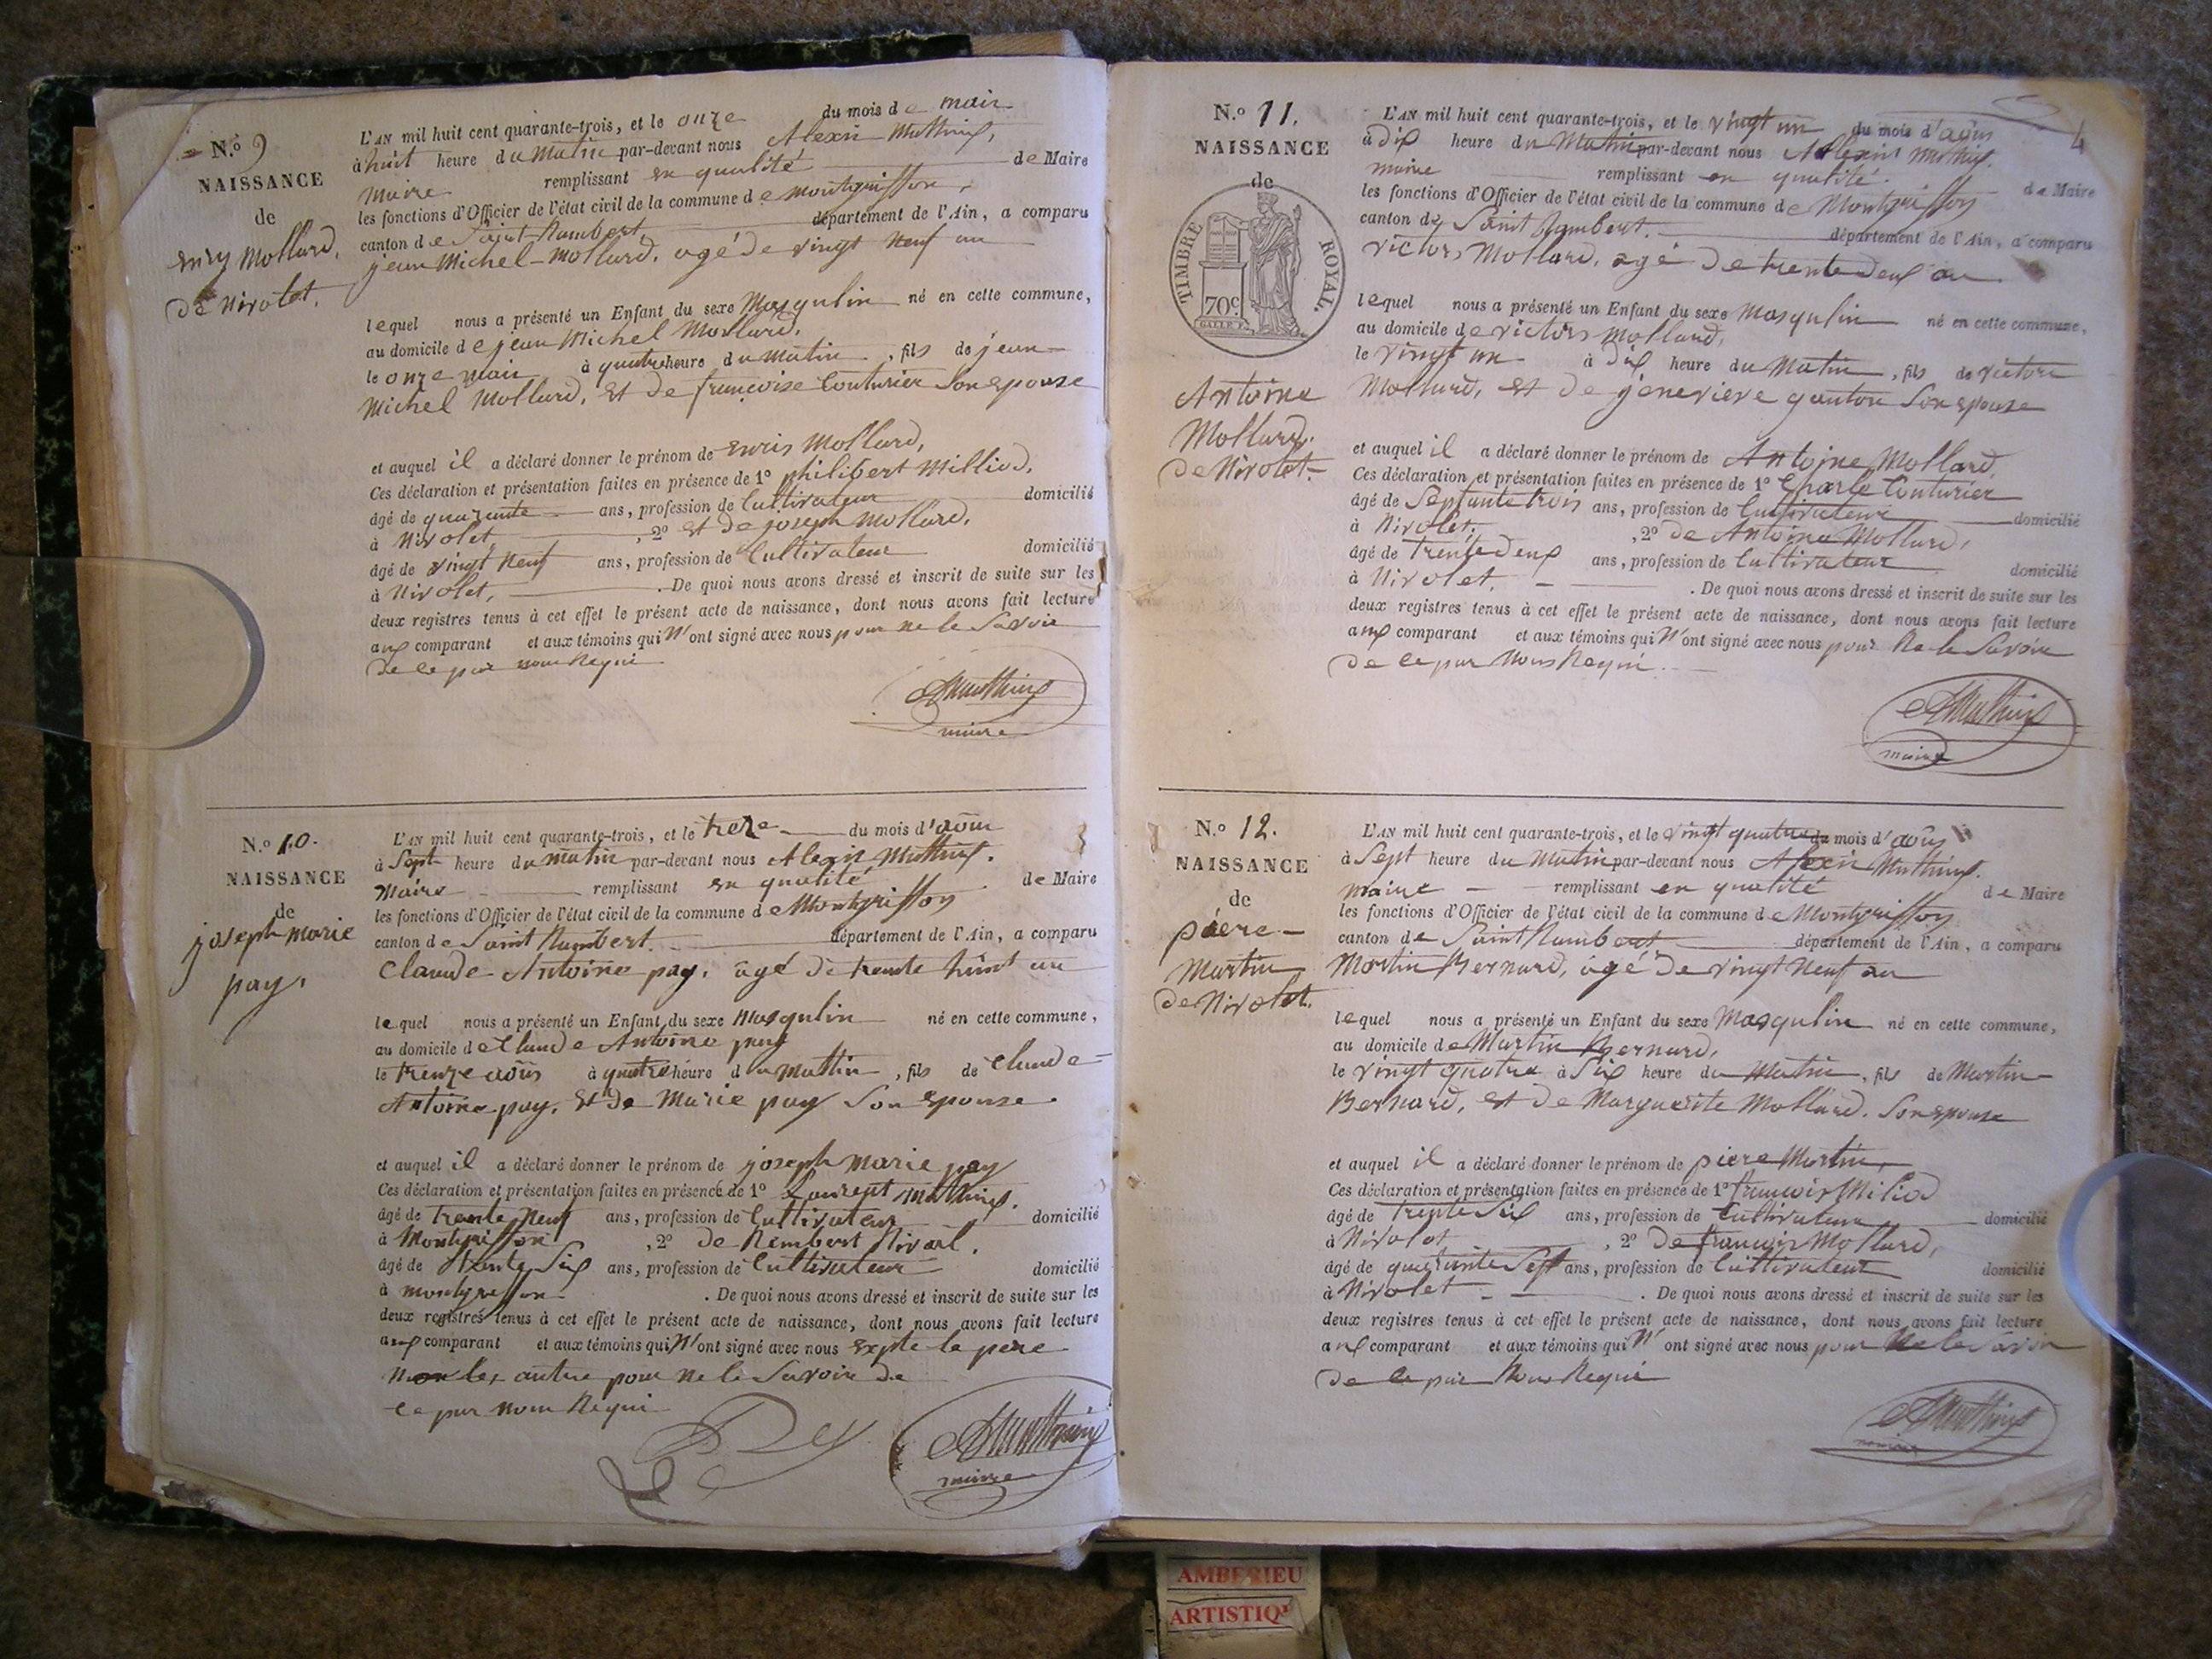 N.º 9
NAISSANCE
de
enry Mollard,
de Nivolet.
L'AN mil huit cent quarante-trois, et le onze du mois de mair
à huit heure du Matin par-devant nous Alexis Mathieux,
Maire remplissant en qualité de Maire
les fonctions d'Officier de l'état civil de la commune de Montgriffon,
canton de Saint Rambert département de l'Ain, a comparu
jean Michel Mollard, agé de vingt neuf an
lequel nous a présenté un Enfant du sexe Masqulin né en cette commune,
au domicile de jean Michel Mollard,
le onze mair à quatre heure du Matin, fils de jean
Michel Mollard, et de françoise Couturier Son epouse
et auquel il a déclaré donner le prénom de enris Mollard,
Ces déclaration et présentation faites en présence de 1º philibert Milliod,
âgé de quarente ans, profession de Cultivateur domicilié
à Nivolet, , 2º et de joseph Mollard,
âgé de vingt neuf ans, profession de Cultivateur domicilié
à Nivolet, . De quoi nous avons dressé et inscrit de suite sur les
deux registres tenus à cet effet le présent acte de naissance, dont nous avons fait lecture
aux comparant et aux témoins qui N'ont signé avec nous pour ne le Savoir
de ce par nous Requi
AMathieux
maire
N.º 10.
NAISSANCE
de
joseph marie
pay.
L'AN mil huit cent quarante-trois, et le treze du mois d'aôus
à Sept heure du matin par-devant nous Alexis Mathieux.
Maire remplissant en qualité de Maire
les fonctions d'Officier de l'état civil de la commune de Montgriffon
canton de Saint Rambert. département de l'Ain, a comparu
Claude Antoine pay, agé de trente huit an
lequel nous a présenté un Enfant du sexe Masqulin né en cette commune,
au domicile de Claude Antoine pay
le treuze aôus à quatre heure du Mattin, fils de Claude
Antoine pay, et de Marie pay Son epouse.
et auquel il a déclaré donner le prénom de joseph marie pay
Ces déclaration et présentation faites en présence de 1º Laurent Mathieux.
âgé de trente Neuf ans, profession de Cultivateur domicilié
à Montgriffon , 2º de Rembert
âgé de trente Six ans, profession de Cultivateur domicilié
à montgriffon . De quoi nous avons dressé et inscrit de suite sur les
deux registres tenus à cet effet le présent acte de naissance, dont nous avons fait lecture
aux comparant et aux témoins qui N'ont signé avec nous expte le pere
Non les autre pour ne le Savoir de
ce par nous Requi
AMathieux
maire
4
N.º 11.
NAISSANCE
de
TIMBRE ROYAL.
70c
GALLE F.
Antoine
Mollard.
de Nivolet
L'AN mil huit cent quarante-trois, et le vingt un du mois d'aôus
à Dix heure du Matin par-devant nous Alexis Mathieux.
maire remplissant en qualité. de Maire
les fonctions d'Officier de l'état civil de la commune de Montgriffon
canton de Saint Rambert. département de l'Ain, a comparu
victors Mollard, agé de trente deux an
lequel nous a présenté un Enfant du sexe Masqulin né en cette commune,
au domicile de victors Mollard,
le vingt un à dix heure du Matin, fils de victors
Mollard, et de genevieve ganton Son epouse
et auquel il a déclaré donner le prénom de Antoine Mollard,
Ces déclaration et présentation faites en présence de 1º Charle Couturier
âgé de Septante trois ans, profession de Cultivateur domicilié
à Nivolet, , 2º de Antoine Mollard,
âgé de trente deux ans, profession de Cultivateur domicilié
à Nivolet, . De quoi nous avons dressé et inscrit de suite sur les
deux registres tenus à cet effet le présent acte de naissance, dont nous avons fait lecture
aux comparant et aux témoins qui N'ont signé avec nous pour Ne le Savoir
de ce par Nous Requi.
AMathieux
maire
N.º 12.
NAISSANCE
de
piere
Martin
de Nivolet.
L'AN mil huit cent quarante-trois, et le vingt quatre du mois d'aôus
à Sept heure du Matin par-devant nous Alexis Mathieux.
maire remplissant en qualité de Maire
les fonctions d'Officier de l'état civil de la commune de Montgriffon
canton de Saint Rambert département de l'Ain, a comparu
Martin Bernard, agé de vingt Neuf an
lequel nous a présenté un Enfant du sexe Masqulin né en cette commune,
au domicile de Martin Bernard,
le vingt quatre à Six heure du Matin, fils de Martin
Bernard, et de Marguerite Mollard. Son epouse
et auquel il a déclaré donner le prénom de piere Martin,
Ces déclaration et présentation faites en présence de 1º francois Miliod
âgé de trente Six ans, profession de Cultivateur domicilié
à Nivolet , 2º de francois Mollard,
âgé de quarante Sept ans, profession de Cultivateur domicilié
à Nivolet . De quoi nous avons dressé et inscrit de suite sur les
deux registres tenus à cet effet le présent acte de naissance, dont nous avons fait lecture
aux comparant et aux témoins qui N'ont signé avec nous pour Ne le Savoir
de ce par Nous Requi
AMathieux
maire
AMBERIEU
ARTISTIQU